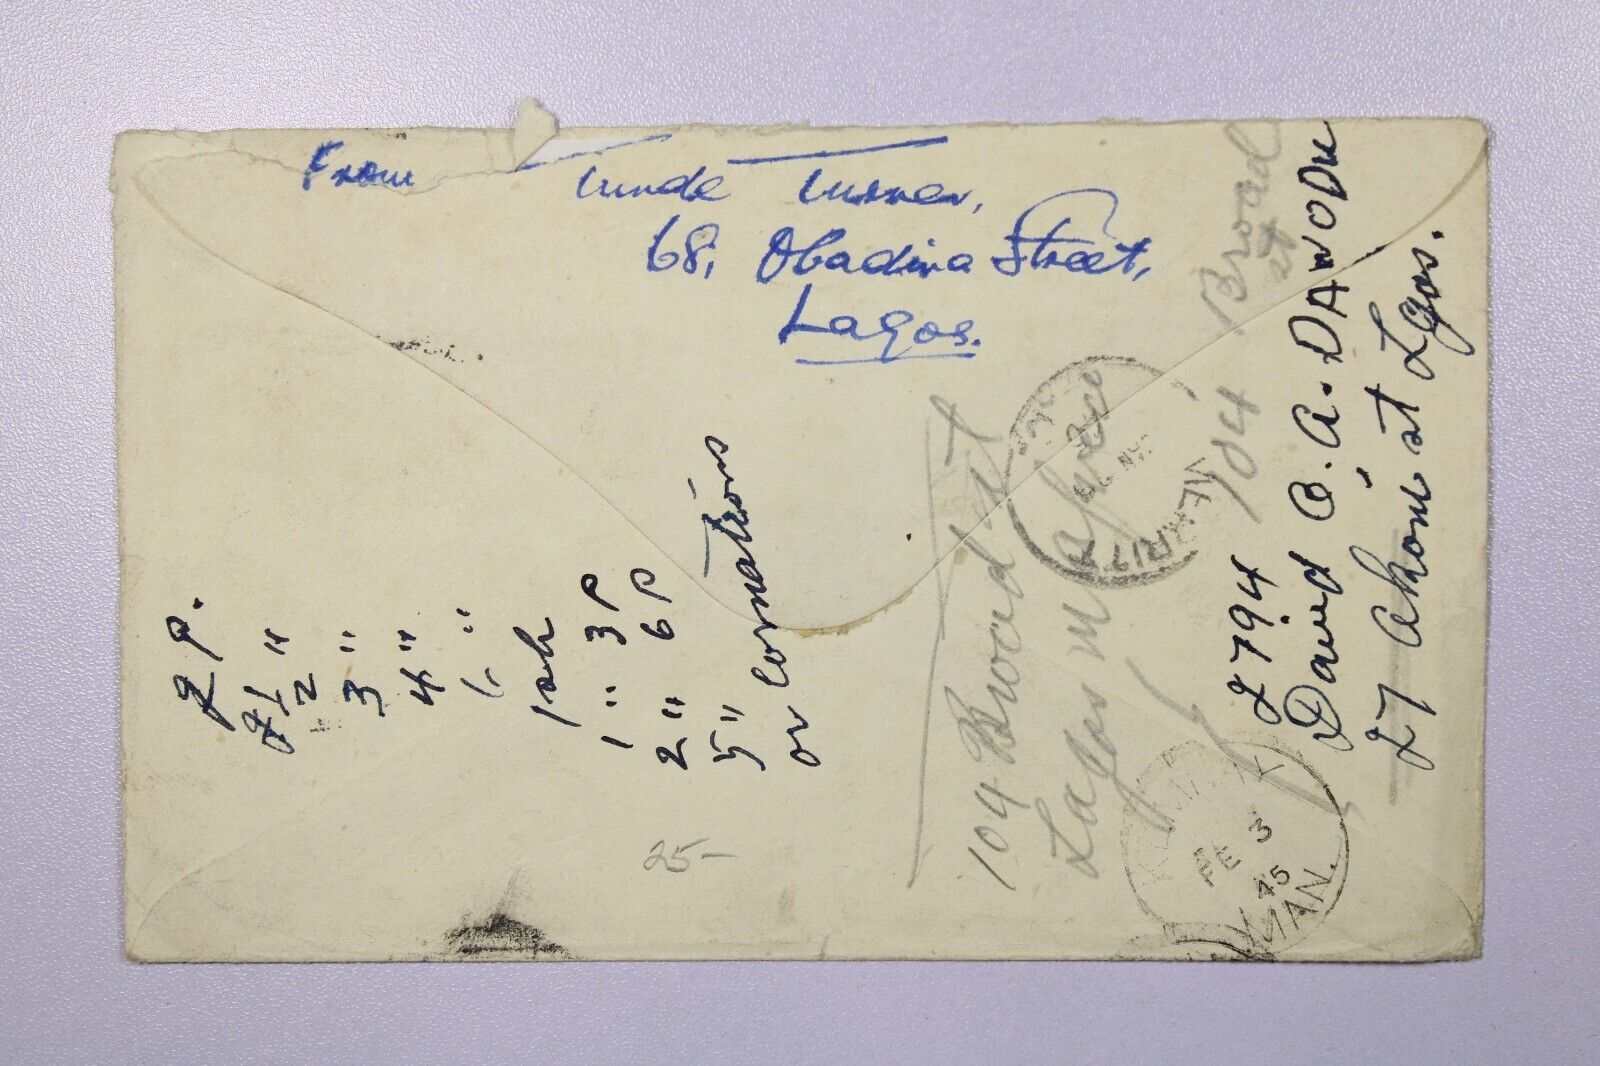 From Tunde Turner,
68, Obadina Street,
Lagos.
2 P.
2 1/2 "
3 "
4 "
6 "
1 sh
1 " 3 P
2 " 6 P
5 "
or Cornations
25-
104 Broad st
Lagos
104 Broad
st
2794
David B. A. DAWODU
27 Akoni st Lgos.
FE 3
45
MAN.